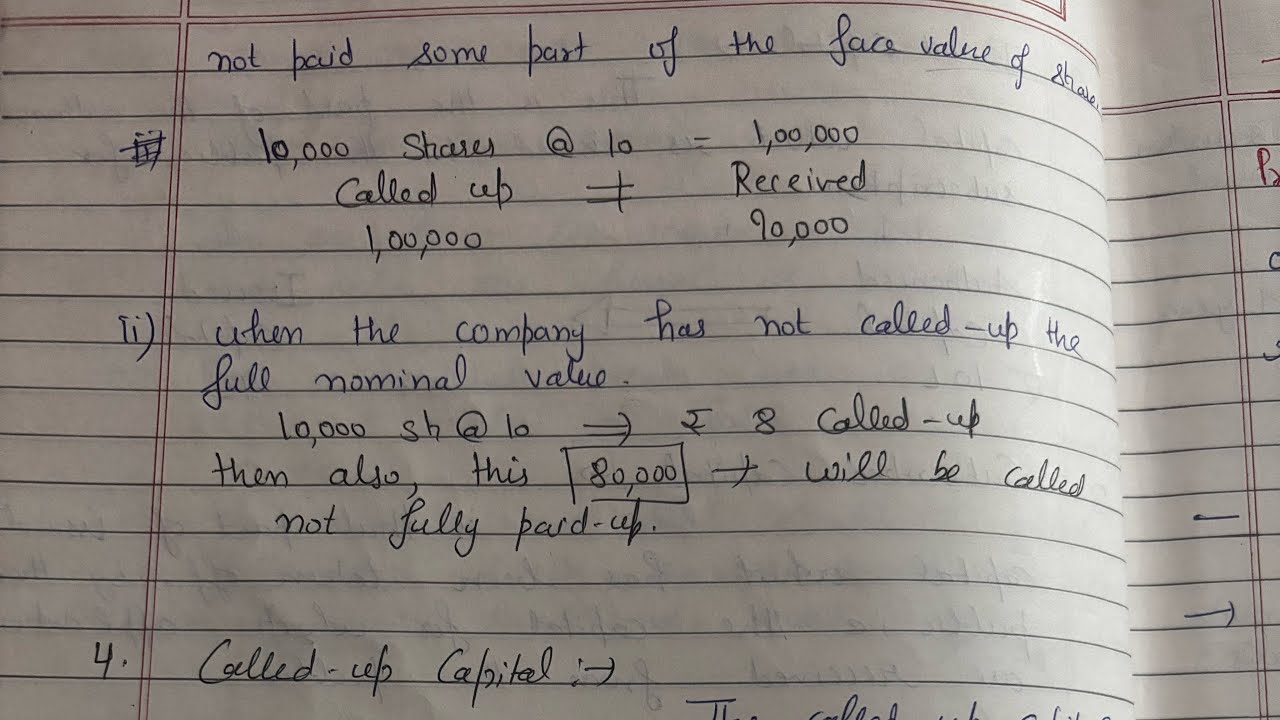 not paid some part of the face value of share.
10,000 Shares @ 10 = 1,00,000
Called up ≠ Received
1,00,000 90,000
ii) when the company has not called-up the
full nominal value.
10,000 sh @ 10 → ₹ 8 Called-up
then also, this 80,000 → will be called
not fully paid-up.
4. Called-up Capital :→
The called up